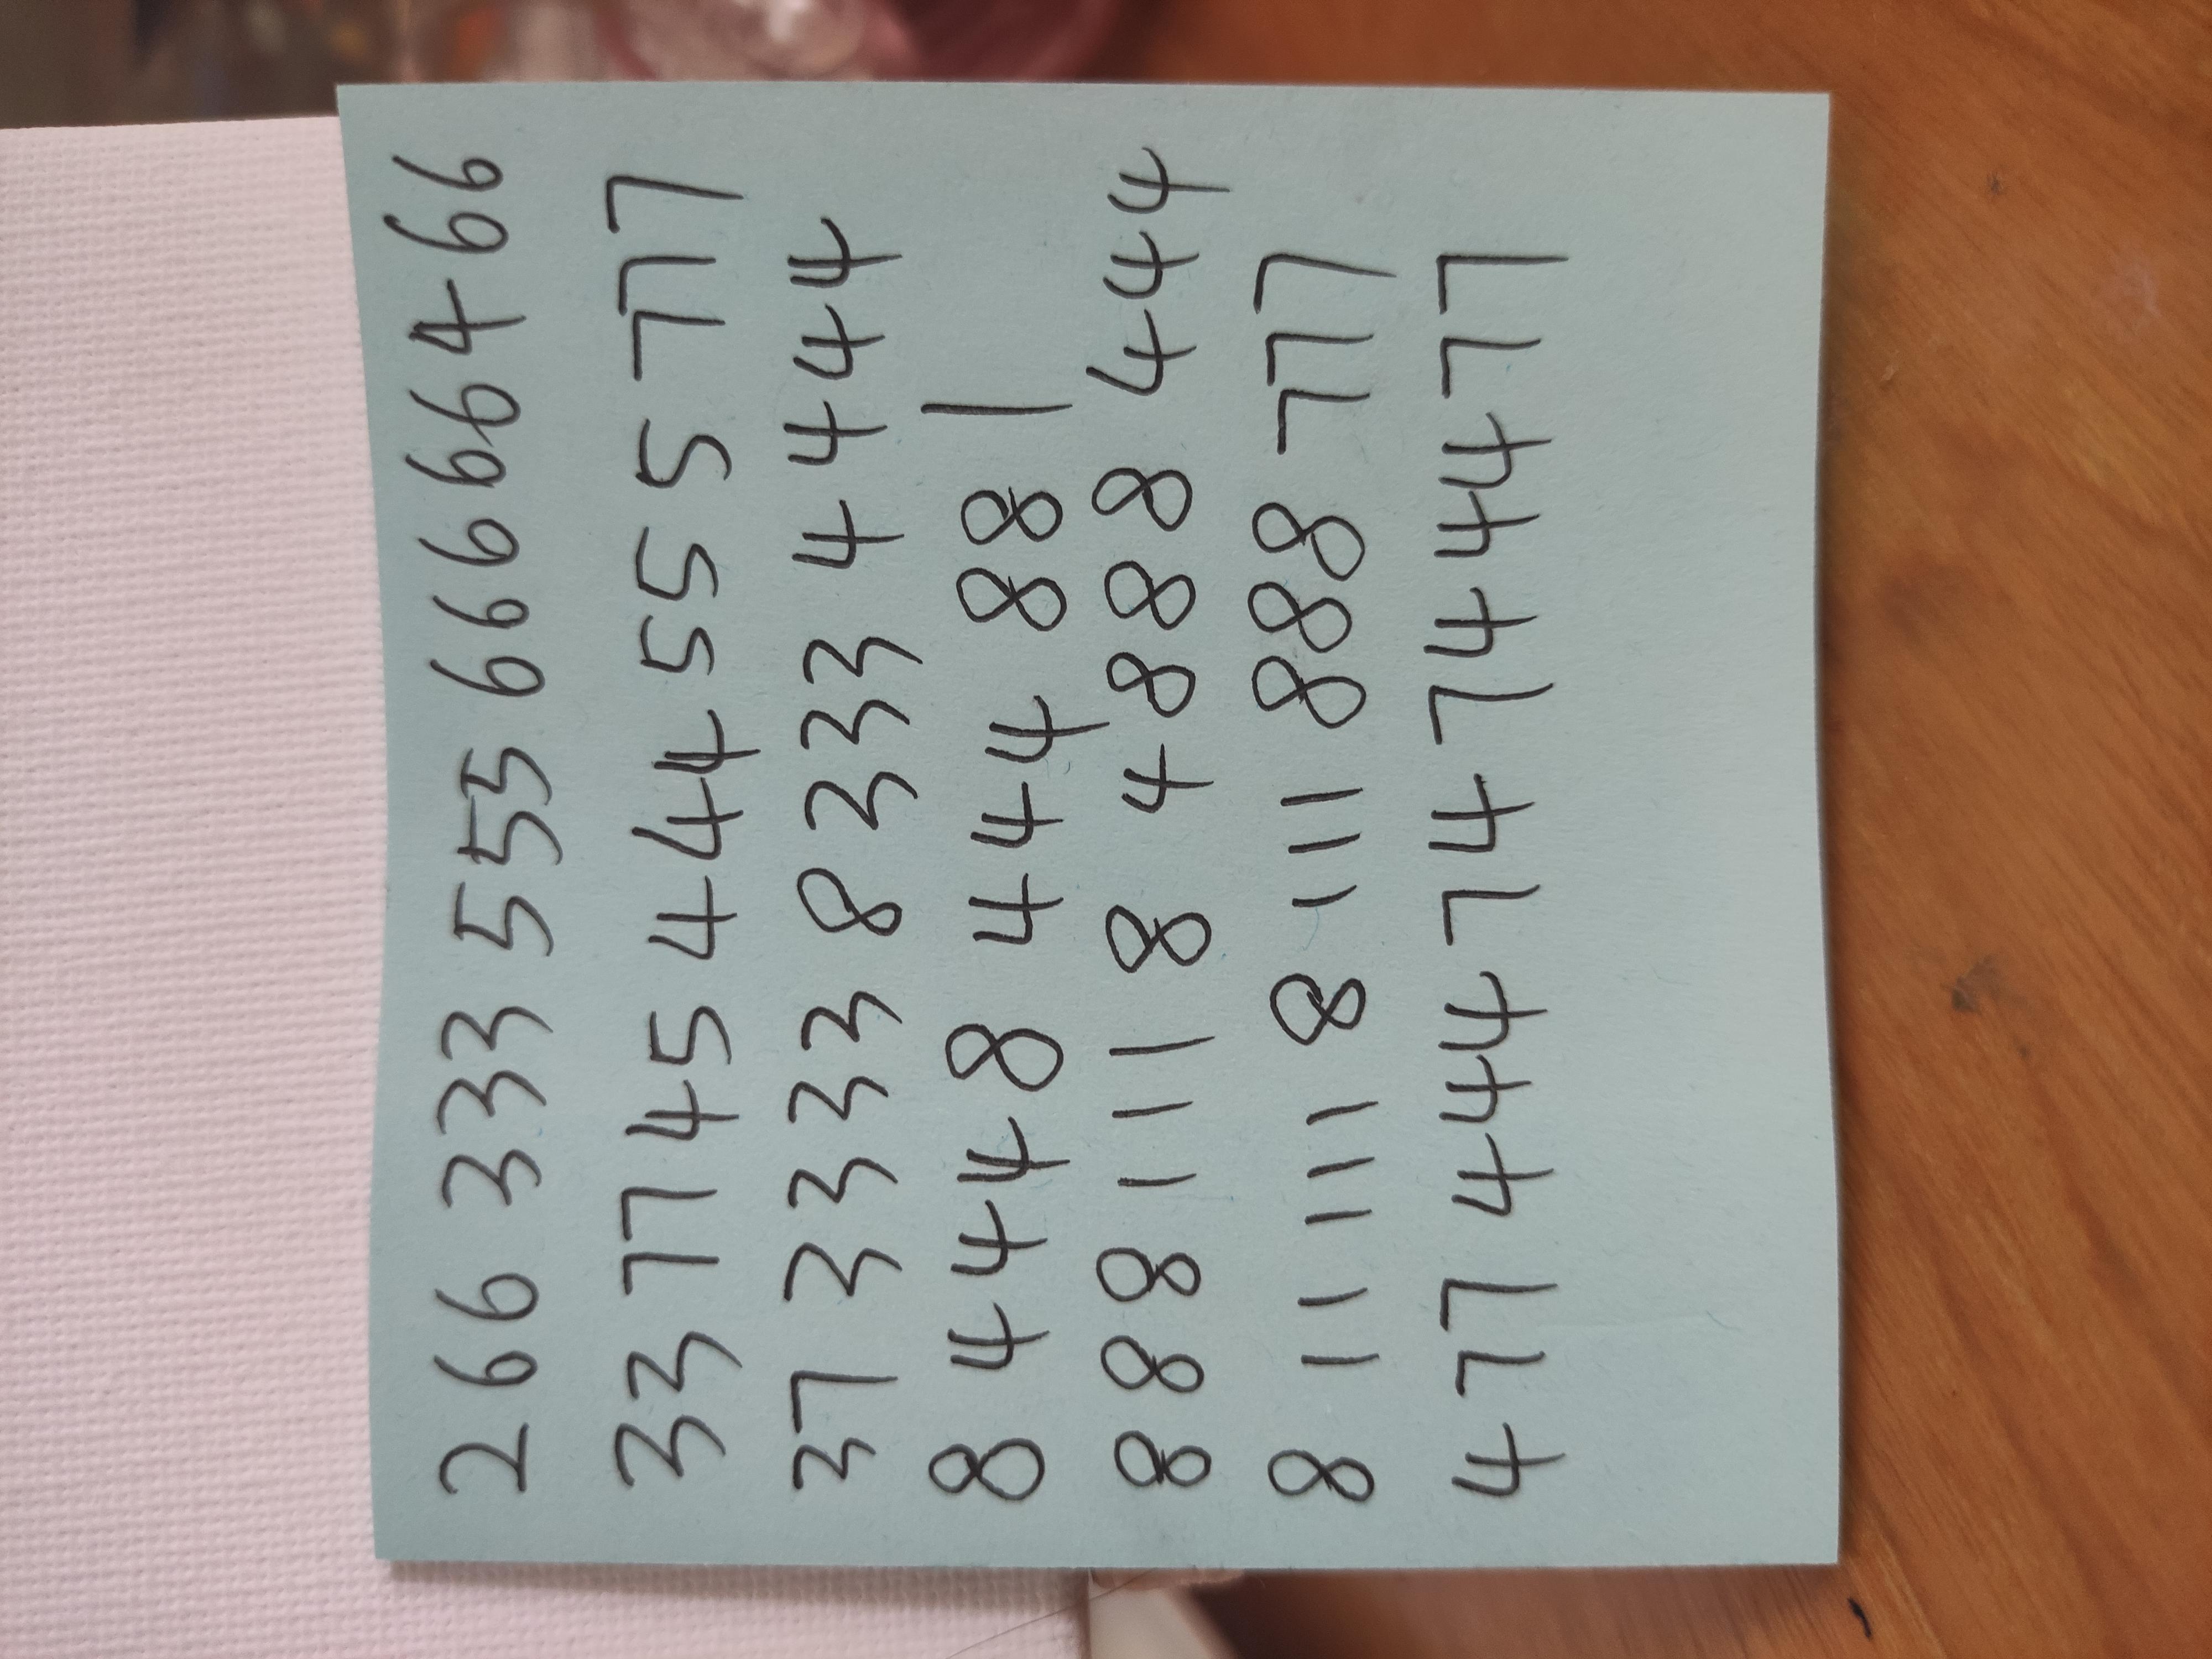 266 333 555 66666466
33 7745 444 555 777
37 3333 8 333 4444
8 4448 444 88 1
888 111 8 4888 444
8 11111 8 111 888 777
477 444 74 7444 77